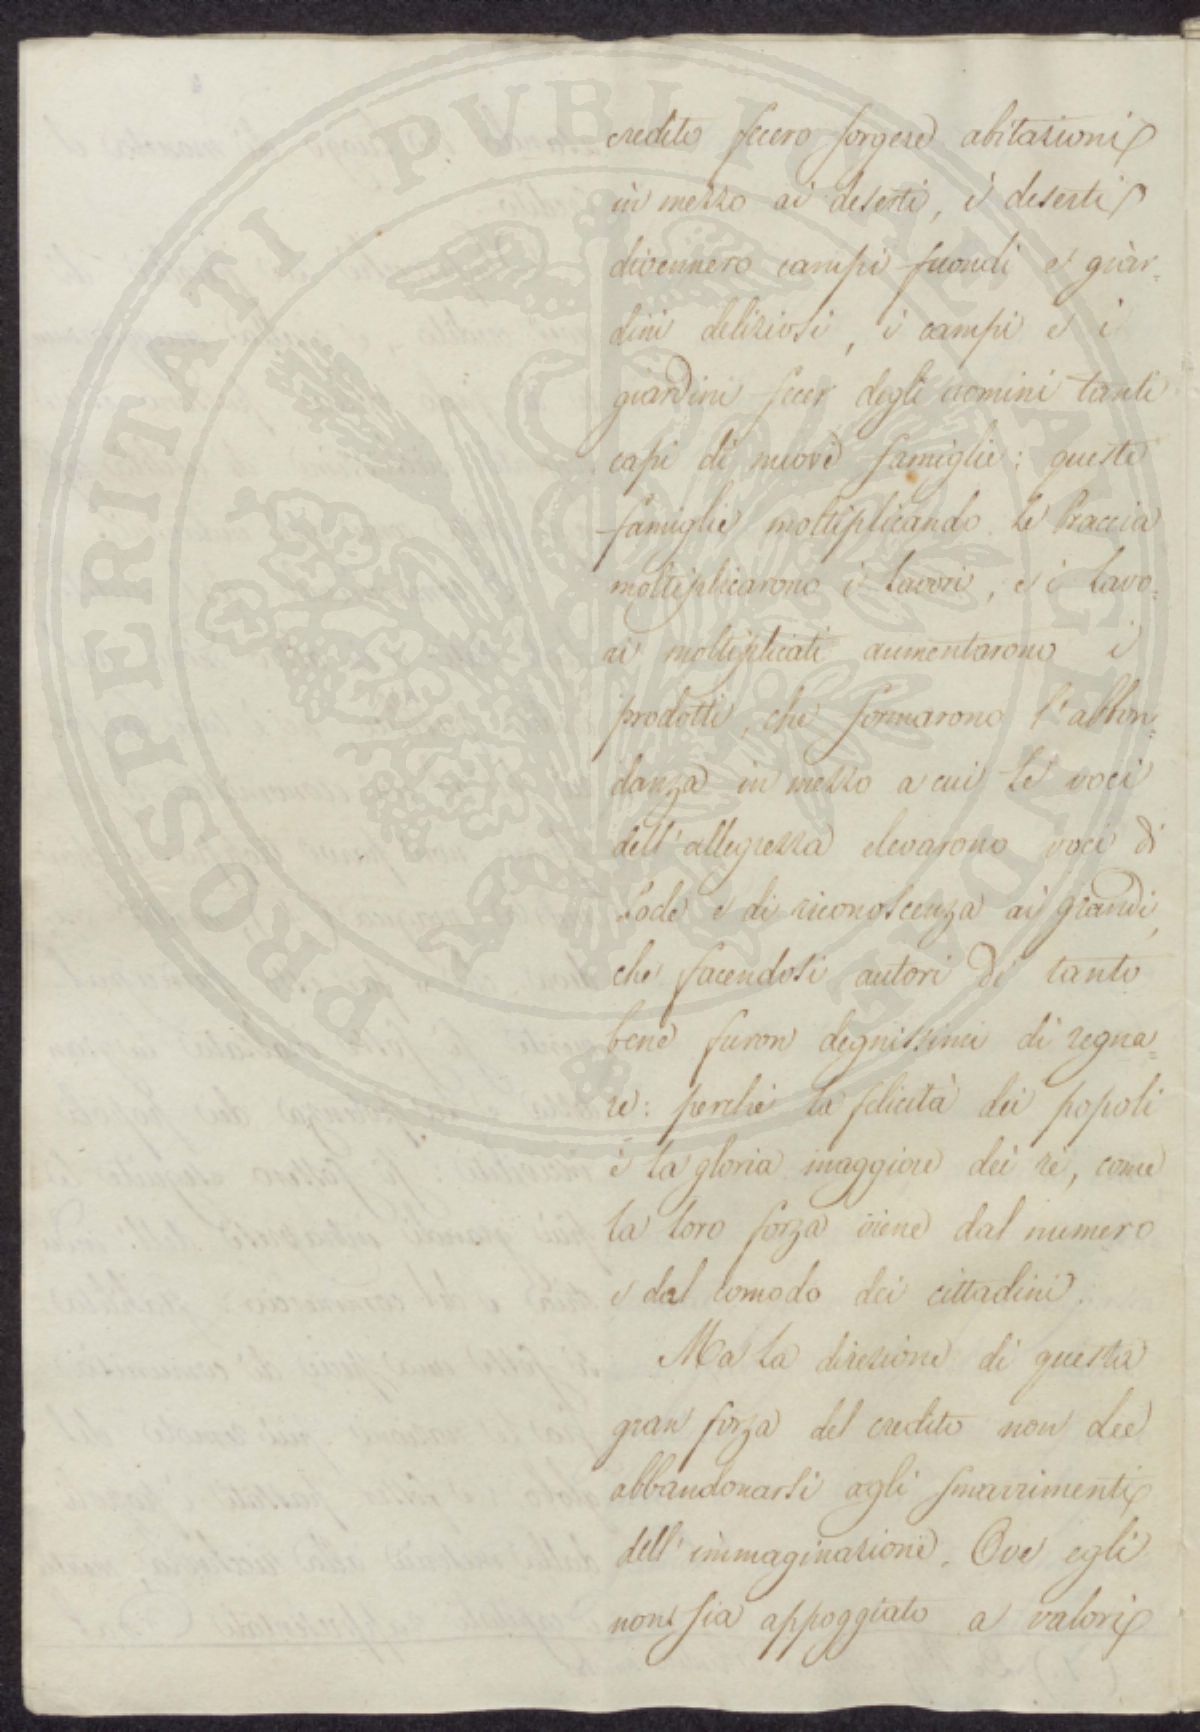 credito fecero sorgere abitazioni
in mezzo ai deserti, i deserti
divennero campi fecondi e giar=
dini deliziosi, i campi e i
giardini fecer degli uomini tanti
capi di nuove famiglie: queste
famiglie moltiplicando le braccia
moltiplicarono i lavori, e i lavo=
ri moltiplicati aumentarono i
prodotti, che formarono l'abbon=
danza in mezzo a cui le voci
dell'allegrezza elevarono voci di
lode e di riconoscenza ai grandi,
che facendosi autori di tanto
bene furon degnissimi di regna=
re: perchè la felicità dei popoli
è la gloria maggiore dei re, come
la loro forza viene dal numero
e dal comodo dei cittadini.
Ma la direzione di questa
gran forza del credito non dee
abbandonarsi agli smarrimenti
dell'immaginazione. Ove egli
non sia appoggiato a valori
PROSPERITATI PUBLICAE AUGENDAE